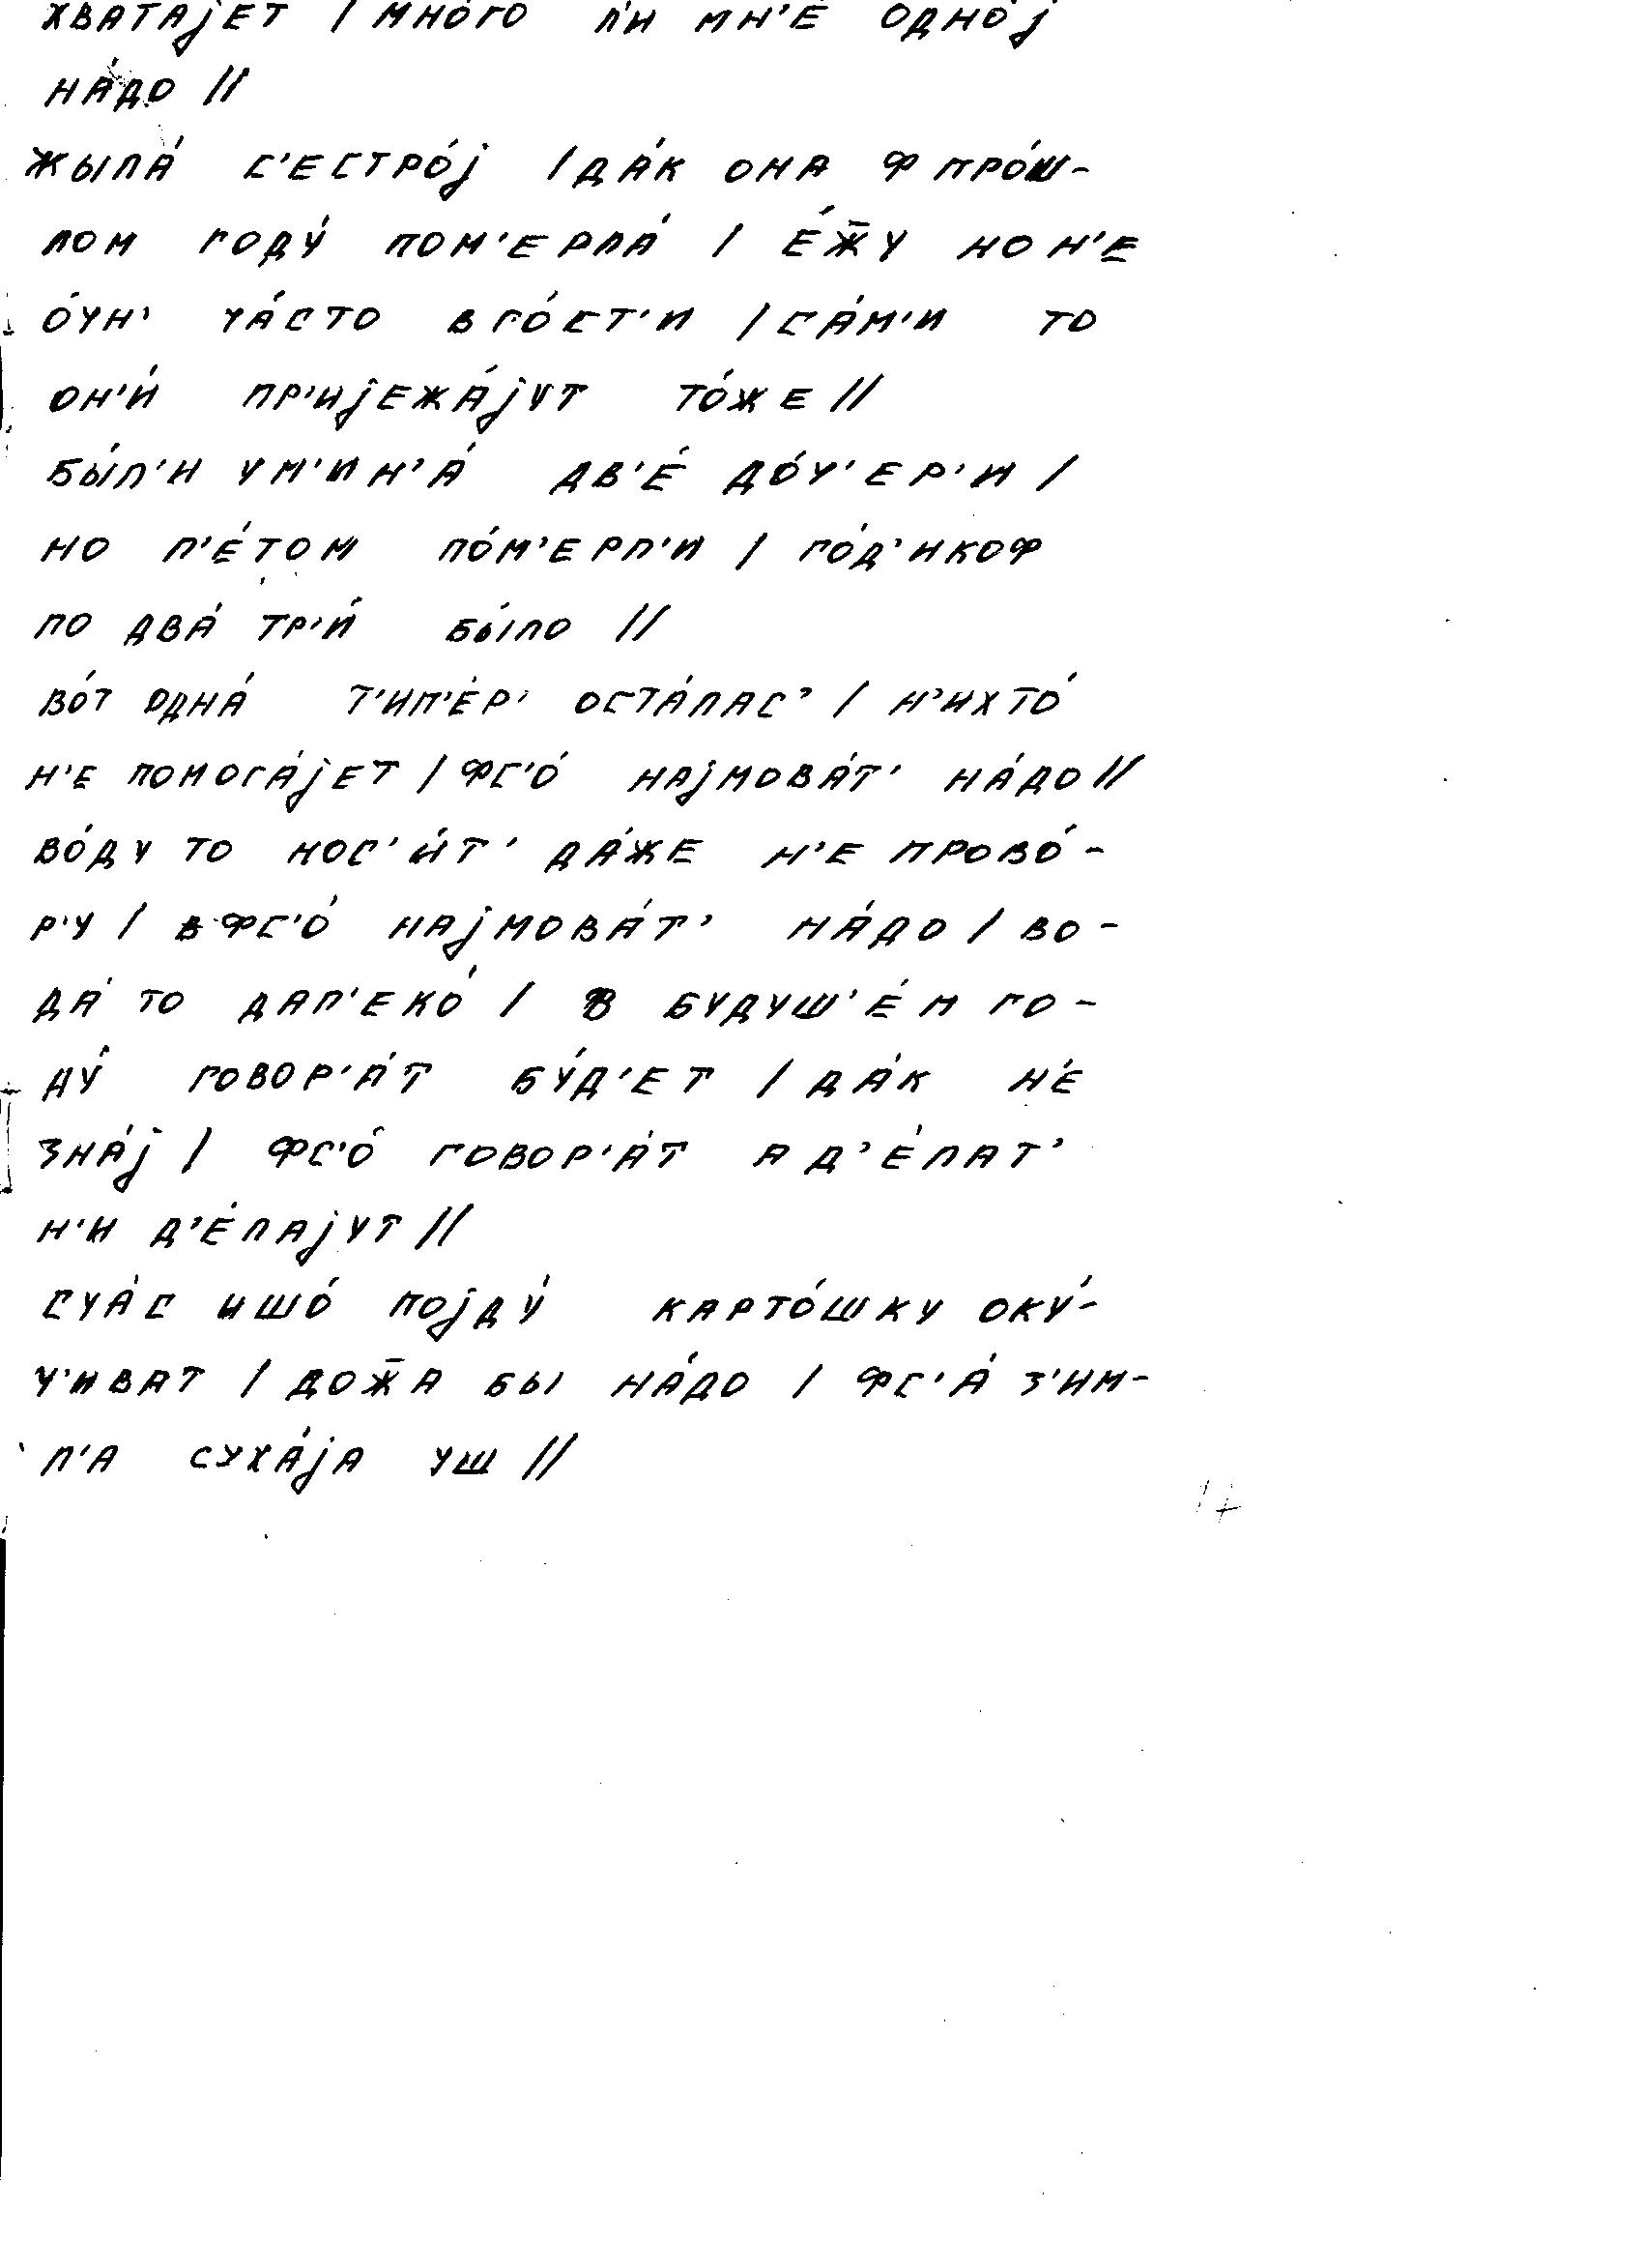 хвата́јет / мно́го л'и мн'е́ одно́ј
на́до //
жыла́ с'естро́ј / да́к она ф про́ш-
лом году́ пом'ерла́ / е́ж̄у но н'е
о́чн' ча́сто в го́ст'и / са́м'и то
он'и́ пр'ијежа́јут то́же //
бы́л'и у м'ин'а́ дв'е́ до́ч'ер'и /
но л'е́том по́м'ерл'и / го́д'икоф
по два́ тр'и́ бы́ло //
во́т одна́ т'ип'е́р' оста́лас' / н'ихто́
н'е помога́јет / фс'о́ најмова́т' на́до //
во́ду то нос'и́т' да́же н'е прово́-
р'у / в фс'о́ најмова́т' на́до / во-
да́ то дал'еко́ / в будуш'е́м го-
ду́ говор'а́т бу́д'ет / да́к н'е́
зна́ј / фс'о́ говор'а́т а д'е́лат'
н'и д'е́лајут //
счас ишо́ појду́ карто́шку оку́-
ч'иват / дож̄а бы на́до / фс'а́ з'им-
л'а суха́ја уш //
17